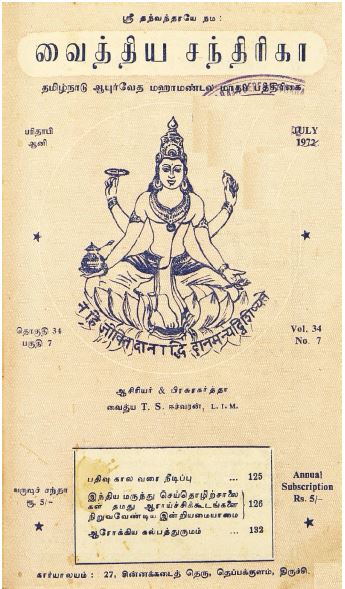 ஸ்ரீ தந்வந்தரயே நம:
வைத்திய சந்திரிகா
தமிழ்நாடு ஆயுர்வேத மஹாமண்டல மாதப் பத்திரிகை
பரிதாபி
ஆனி
JULY
1972
न हि जीवितदानाद्धि दानमन्यद्विशिष्यते
தொகுதி 34
பகுதி 7
Vol. 34
No. 7
ஆசிரியர் & பிரசுரகர்த்தா
வைத்ய T. S. ஈச்வரன், L. I. M.
வருஷச் சந்தா
ரூ. 5/-
பதிவு கால வரை நீடிப்பு ... 125
இந்திய மருந்து செய்தொழிற்சாலை
கள் தமது ஆராய்ச்சிக்கூடங்களை } 126
நிறுவவேண்டிய இன்றியமையாமை
ஆரோக்கிய கல்பத்துருமம் ... 132
Annual
Subscription
Rs. 5/-
கார்யாலயம் : 27, சின்னக்கடைத் தெரு, தெப்பக்குளம், திருச்சி.